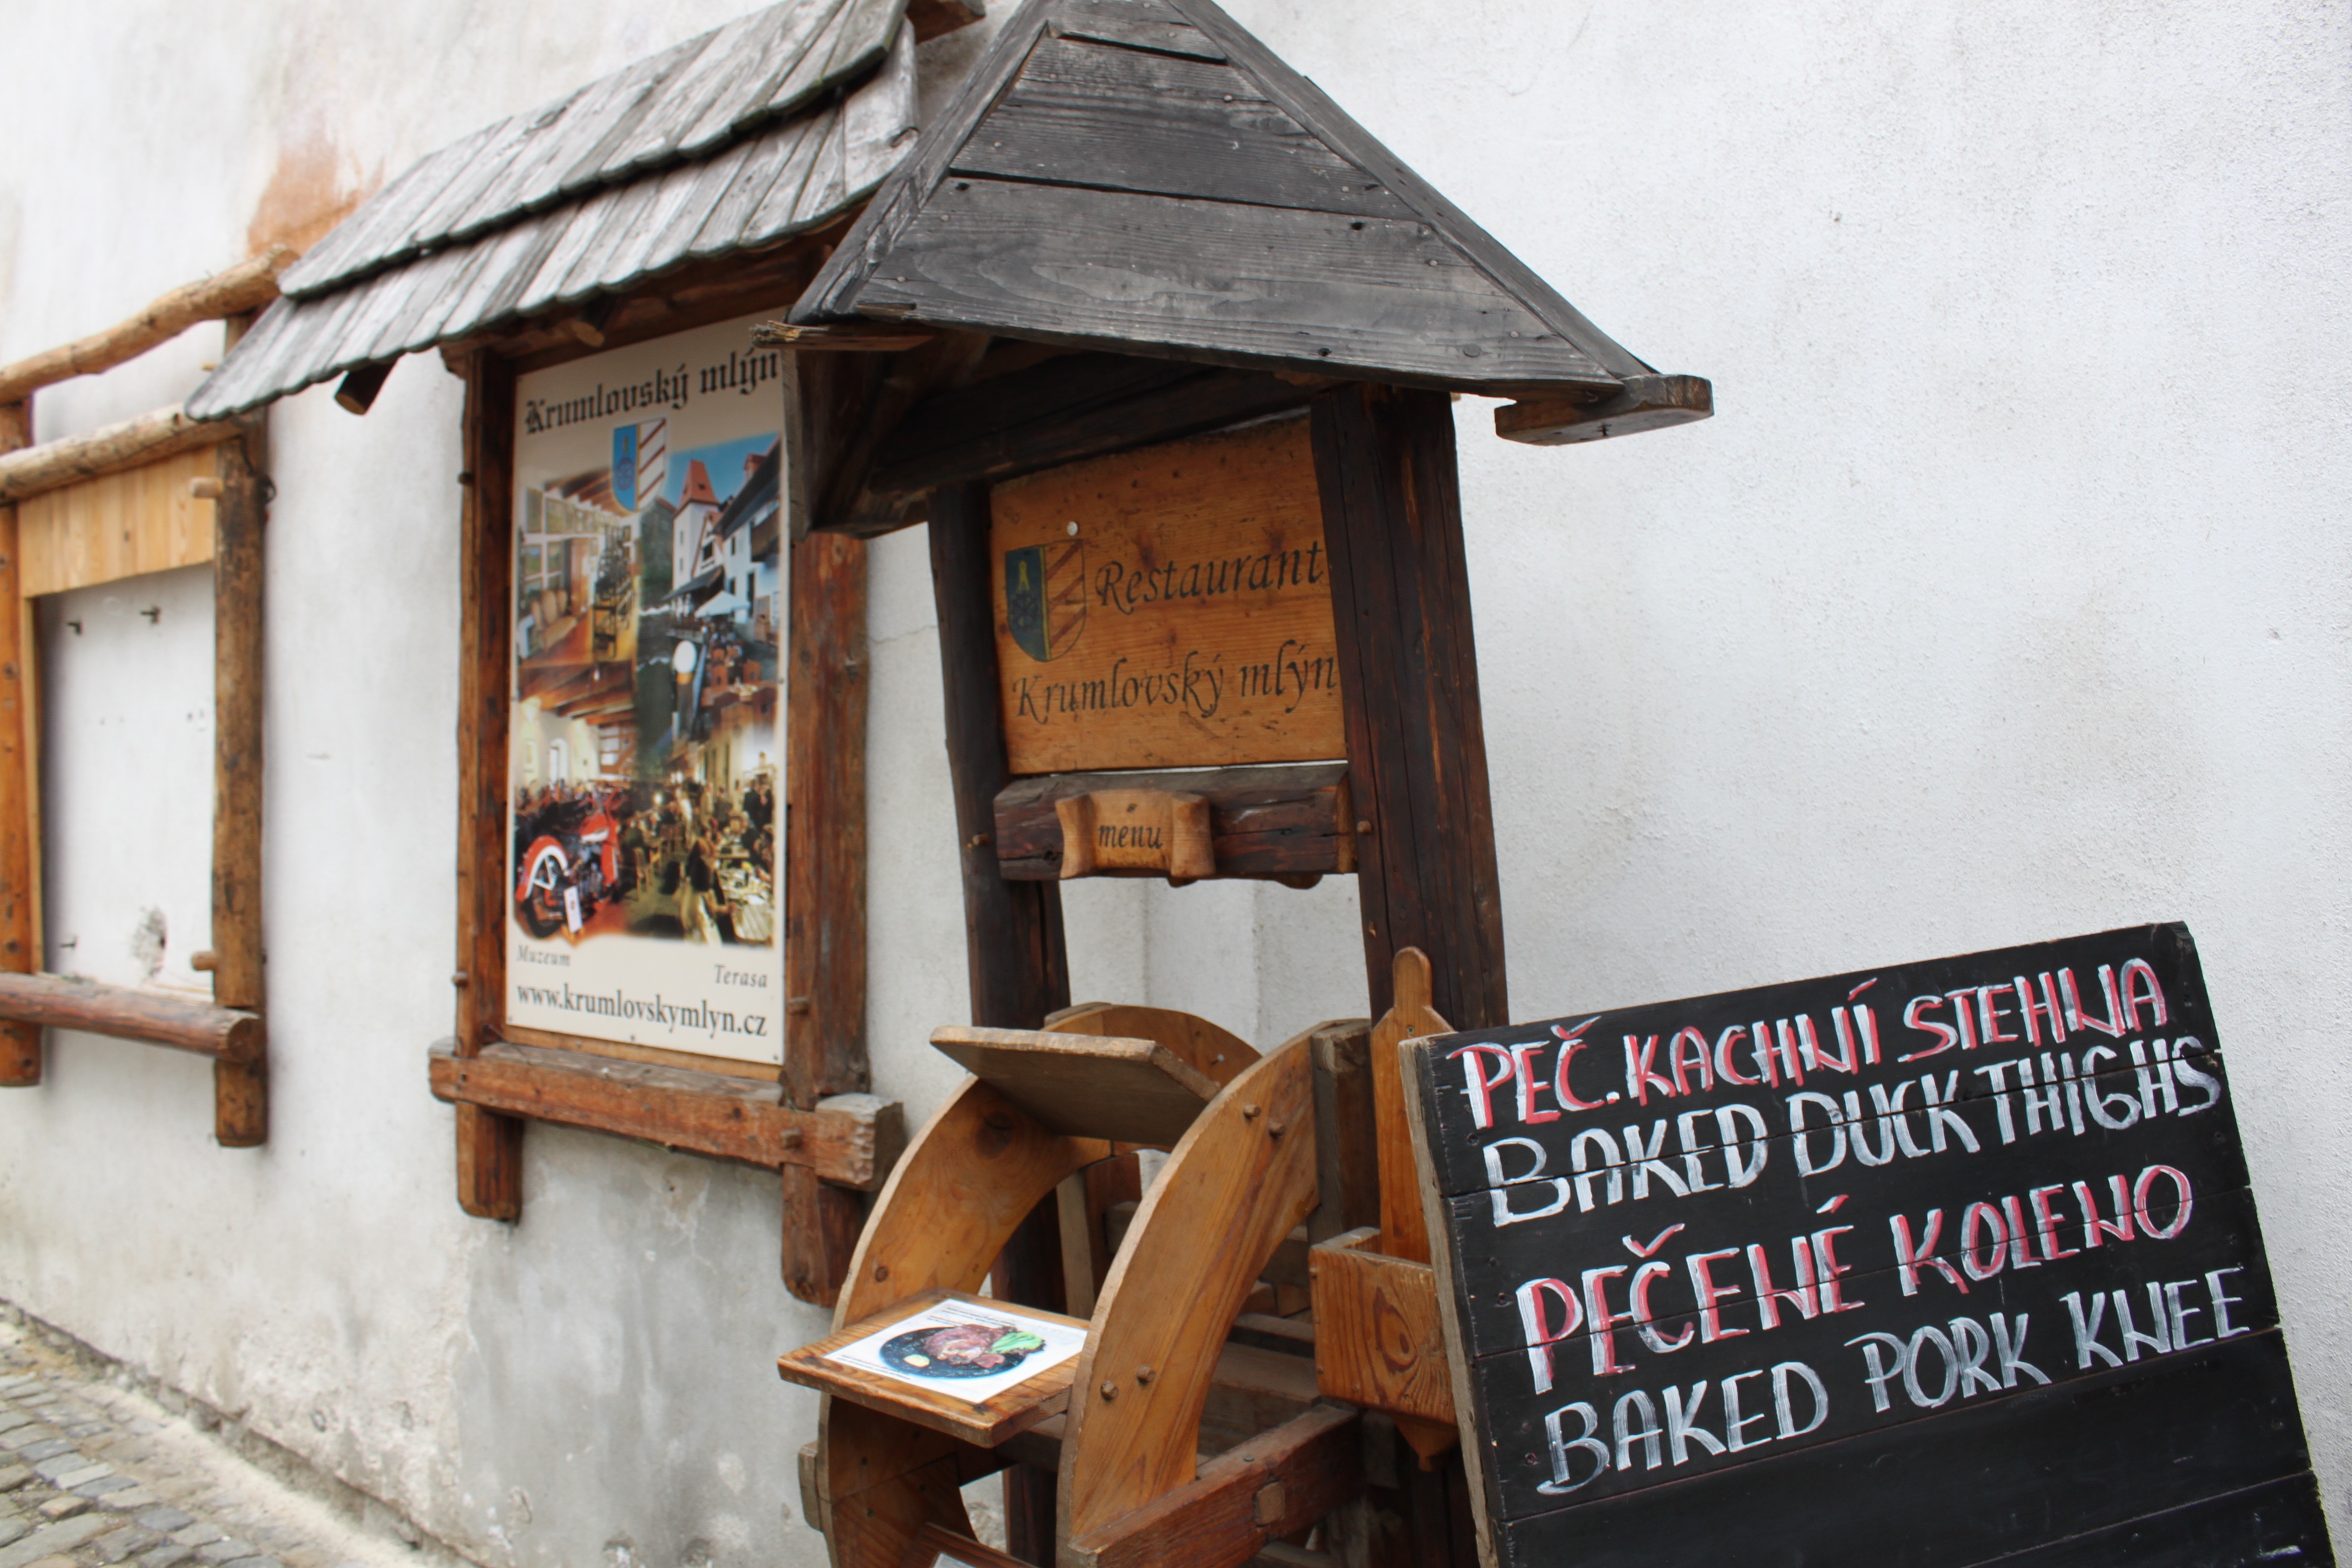 Krumlovský mlýn
Muzeum
Terasa
www.krumlovskymlyn.cz
Restaurant
Krumlovský mlýn
menu
PEČ. KACHNÍ STEHNA
BAKED DUCK THIGHS
PEČENÉ KOLENO
BAKED PORK KNEE